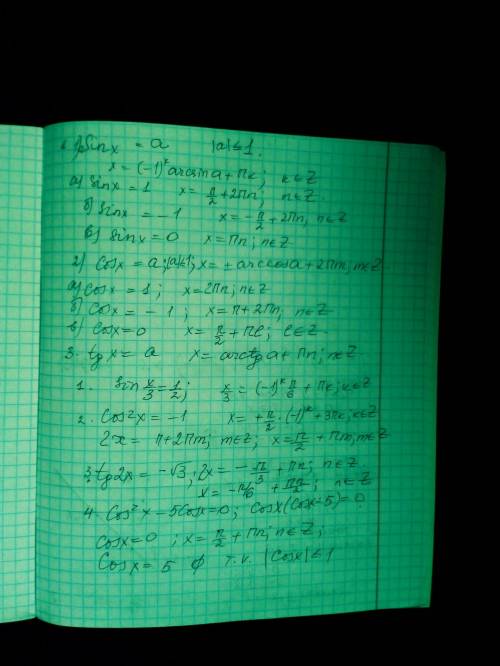 1) Sin x = a |a| ≤ 1.
x = (-1)^k arcsin a + πk; k∈Z
а) Sin x = 1 x = π/2 + 2πn; n∈Z
б) Sin x = -1 x = -π/2 + 2πn, n∈Z
в) Sin x = 0 x = πn; n∈Z
2) Cos x = a; |a|≤1; x = ± arccos a + 2πm, m∈Z
а) Cos x = 1; x = 2πn; n∈Z
б) Cos x = -1; x = π + 2πn; n∈Z
в) Cos x = 0 x = π/2 + πl; l∈Z
3. tg x = a x = arctg a + πn; n∈Z
1. Sin x/3 = 1/2; x/3 = (-1)^k π/6 + πk; k∈Z
2. Cos 2x = -1 x = + π/2 · (-1)^k + 3πk; k∈Z
2x = π + 2πm; m∈Z; x = π/2 + πm, m∈Z
3. tg 2x = -√3; 2x = -π/3 + πn; n∈Z
x = -π/6 + πn/2; n∈Z
4. Cos²x - 5Cos x = 0; Cos x (Cos x - 5) = 0
Cos x = 0; x = π/2 + πn; n∈Z;
Cos x = 5 ∅ т.к. |Cos x| ≤ 1